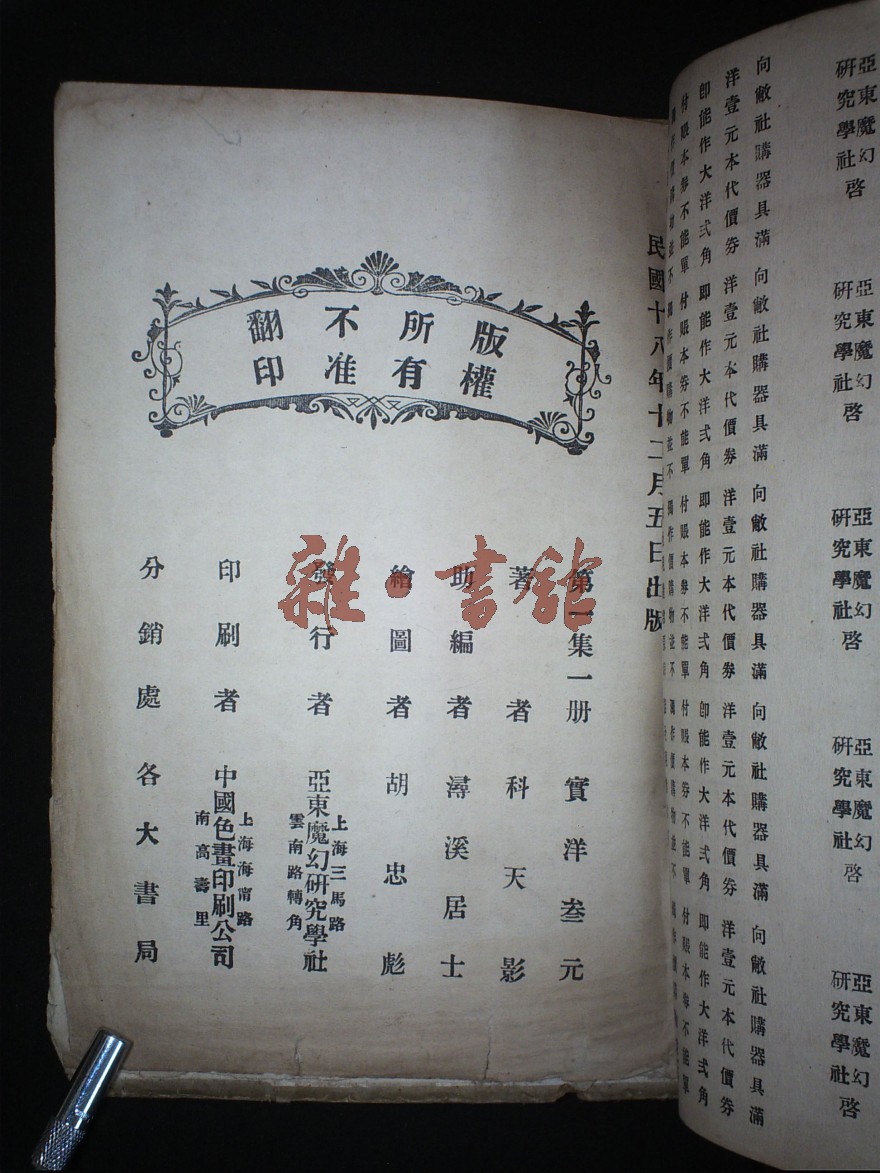 亞東魔幻
研究學社 啓
向敝社購器具滿
洋壹元本代價券
即能作大洋弍角
付賬本券不能單
亞東魔幻
研究學社 啓
向敝社購器具滿
洋壹元本代價券
即能作大洋弍角
付賬本券不能單
獨作價購物並不
亞東魔幻
研究學社 啓
向敝社購器具滿
洋壹元本代價券
即能作大洋弍角
付賬本券不能單
獨作價購物並不
亞東魔幻
研究學社 啓
向敝社購器具滿
洋壹元本代價券
即能作大洋弍角
付賬本券不能單
獨作價購物並不
亞東魔幻
研究學社 啓
向敝社購器具滿
洋壹元本代價券
即能作大洋弍角
付賬本券不能單
民國十八年十二月五日出版
版權
所有
不准
翻印
第一集一册實洋叁元
著者科天影
助編者潯溪居士
繪圖者胡忠彪
發行者
上海三馬路
亞東魔幻研究學社
雲南路轉角
印刷者
上海海甯路
中國色畫印刷公司
南高壽里
分銷處各大書局
雜·書館